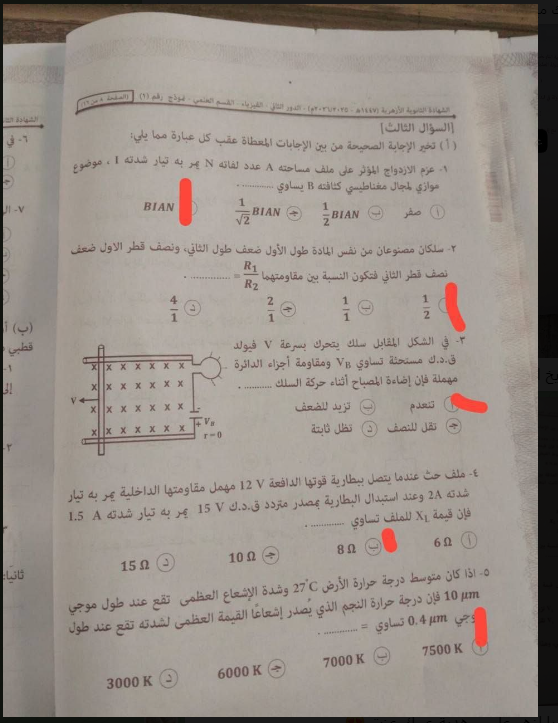 الشهادة الثانوية الأزهرية (١٤٤٧هـ - ٢٠٢٥/٢٠٢٦م) - الدور الثاني - الفيزياء - القسم العلمي - نموذج رقم (١) (الصفحة ٥ من
السؤال الثالث
( أ ) تخير الإجابة الصحيحة من بين الإجابات المعطاة عقب كل عبارة مما يلي:
١- عزم الازدواج المؤثر على ملف مساحته A عدد لفاته N يمر به تيار شدته I ، موضوع
موازي لمجال مغناطيسي كثافته B يساوي ............
أ صفر ب 1/2 BIAN ج 1/√2 BIAN BIAN
٢- سلكان مصنوعان من نفس المادة طول الأول ضعف طول الثاني، ونصف قطر الاول ضعف
نصف قطر الثاني فتكون النسبة بين مقاومتهما R1/R2 = ............ .
1/2 ب 1/1 ج 2/1 د 4/1
٣- في الشكل المقابل سلك يتحرك بسرعة V فيولد
ق.د.ك مستحثة تساوي VB ومقاومة أجزاء الدائرة
مهملة فإن إضاءة المصباح أثناء حركة السلك ............
أ تنعدم ب تزيد للضعف
ج تقل للنصف د تظل ثابتة
x x x x x x
x x x x x x
V x x x x x x
x x x x x x
VB
r=0
٤- ملف حث عندما يتصل ببطارية قوتها الدافعة 12 V مهمل مقاومتها الداخلية يمر به تيار
شدته 2A وعند استبدال البطارية بمصدر متردد ق.د.ك 15 V يمر به تيار شدته 1.5 A
فإن قيمة XL للملف تساوي ............ .
أ 6 Ω ب 8 Ω ج 10 Ω د 15 Ω
٥- اذا كان متوسط درجة حرارة الأرض 27°C وشدة الإشعاع العظمى تقع عند طول موجي
10 μm فإن درجة حرارة النجم الذي يُصدر إشعاعًا القيمة العظمى لشدته تقع عند طول
موجي 0.4 μm تساوي = ............ .
أ 7500 K ب 7000 K ج 6000 K د 3000 K
الشهادة الثا
٦- في
أ
ج
٧- ال
(ب) أ
قطبي
١-
إلى
٢-
ثانيًا